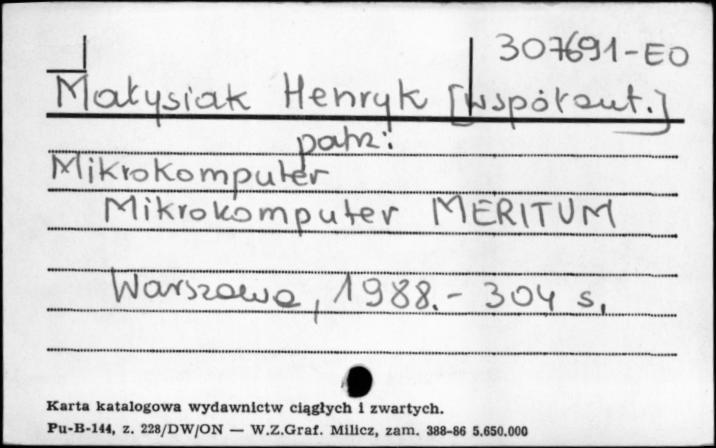 307691-EO
Małysiak Henryk [współaut.]
patrz:
Mikrokomputer
Mikrokomputer MERITUM
Warszawa, 1988.- 304 s.
Karta katalogowa wydawnictw ciągłych i zwartych.
Pu-B-144, z. 228/DW/ON — W.Z.Graf. Milicz, zam. 388-86 5.650.000